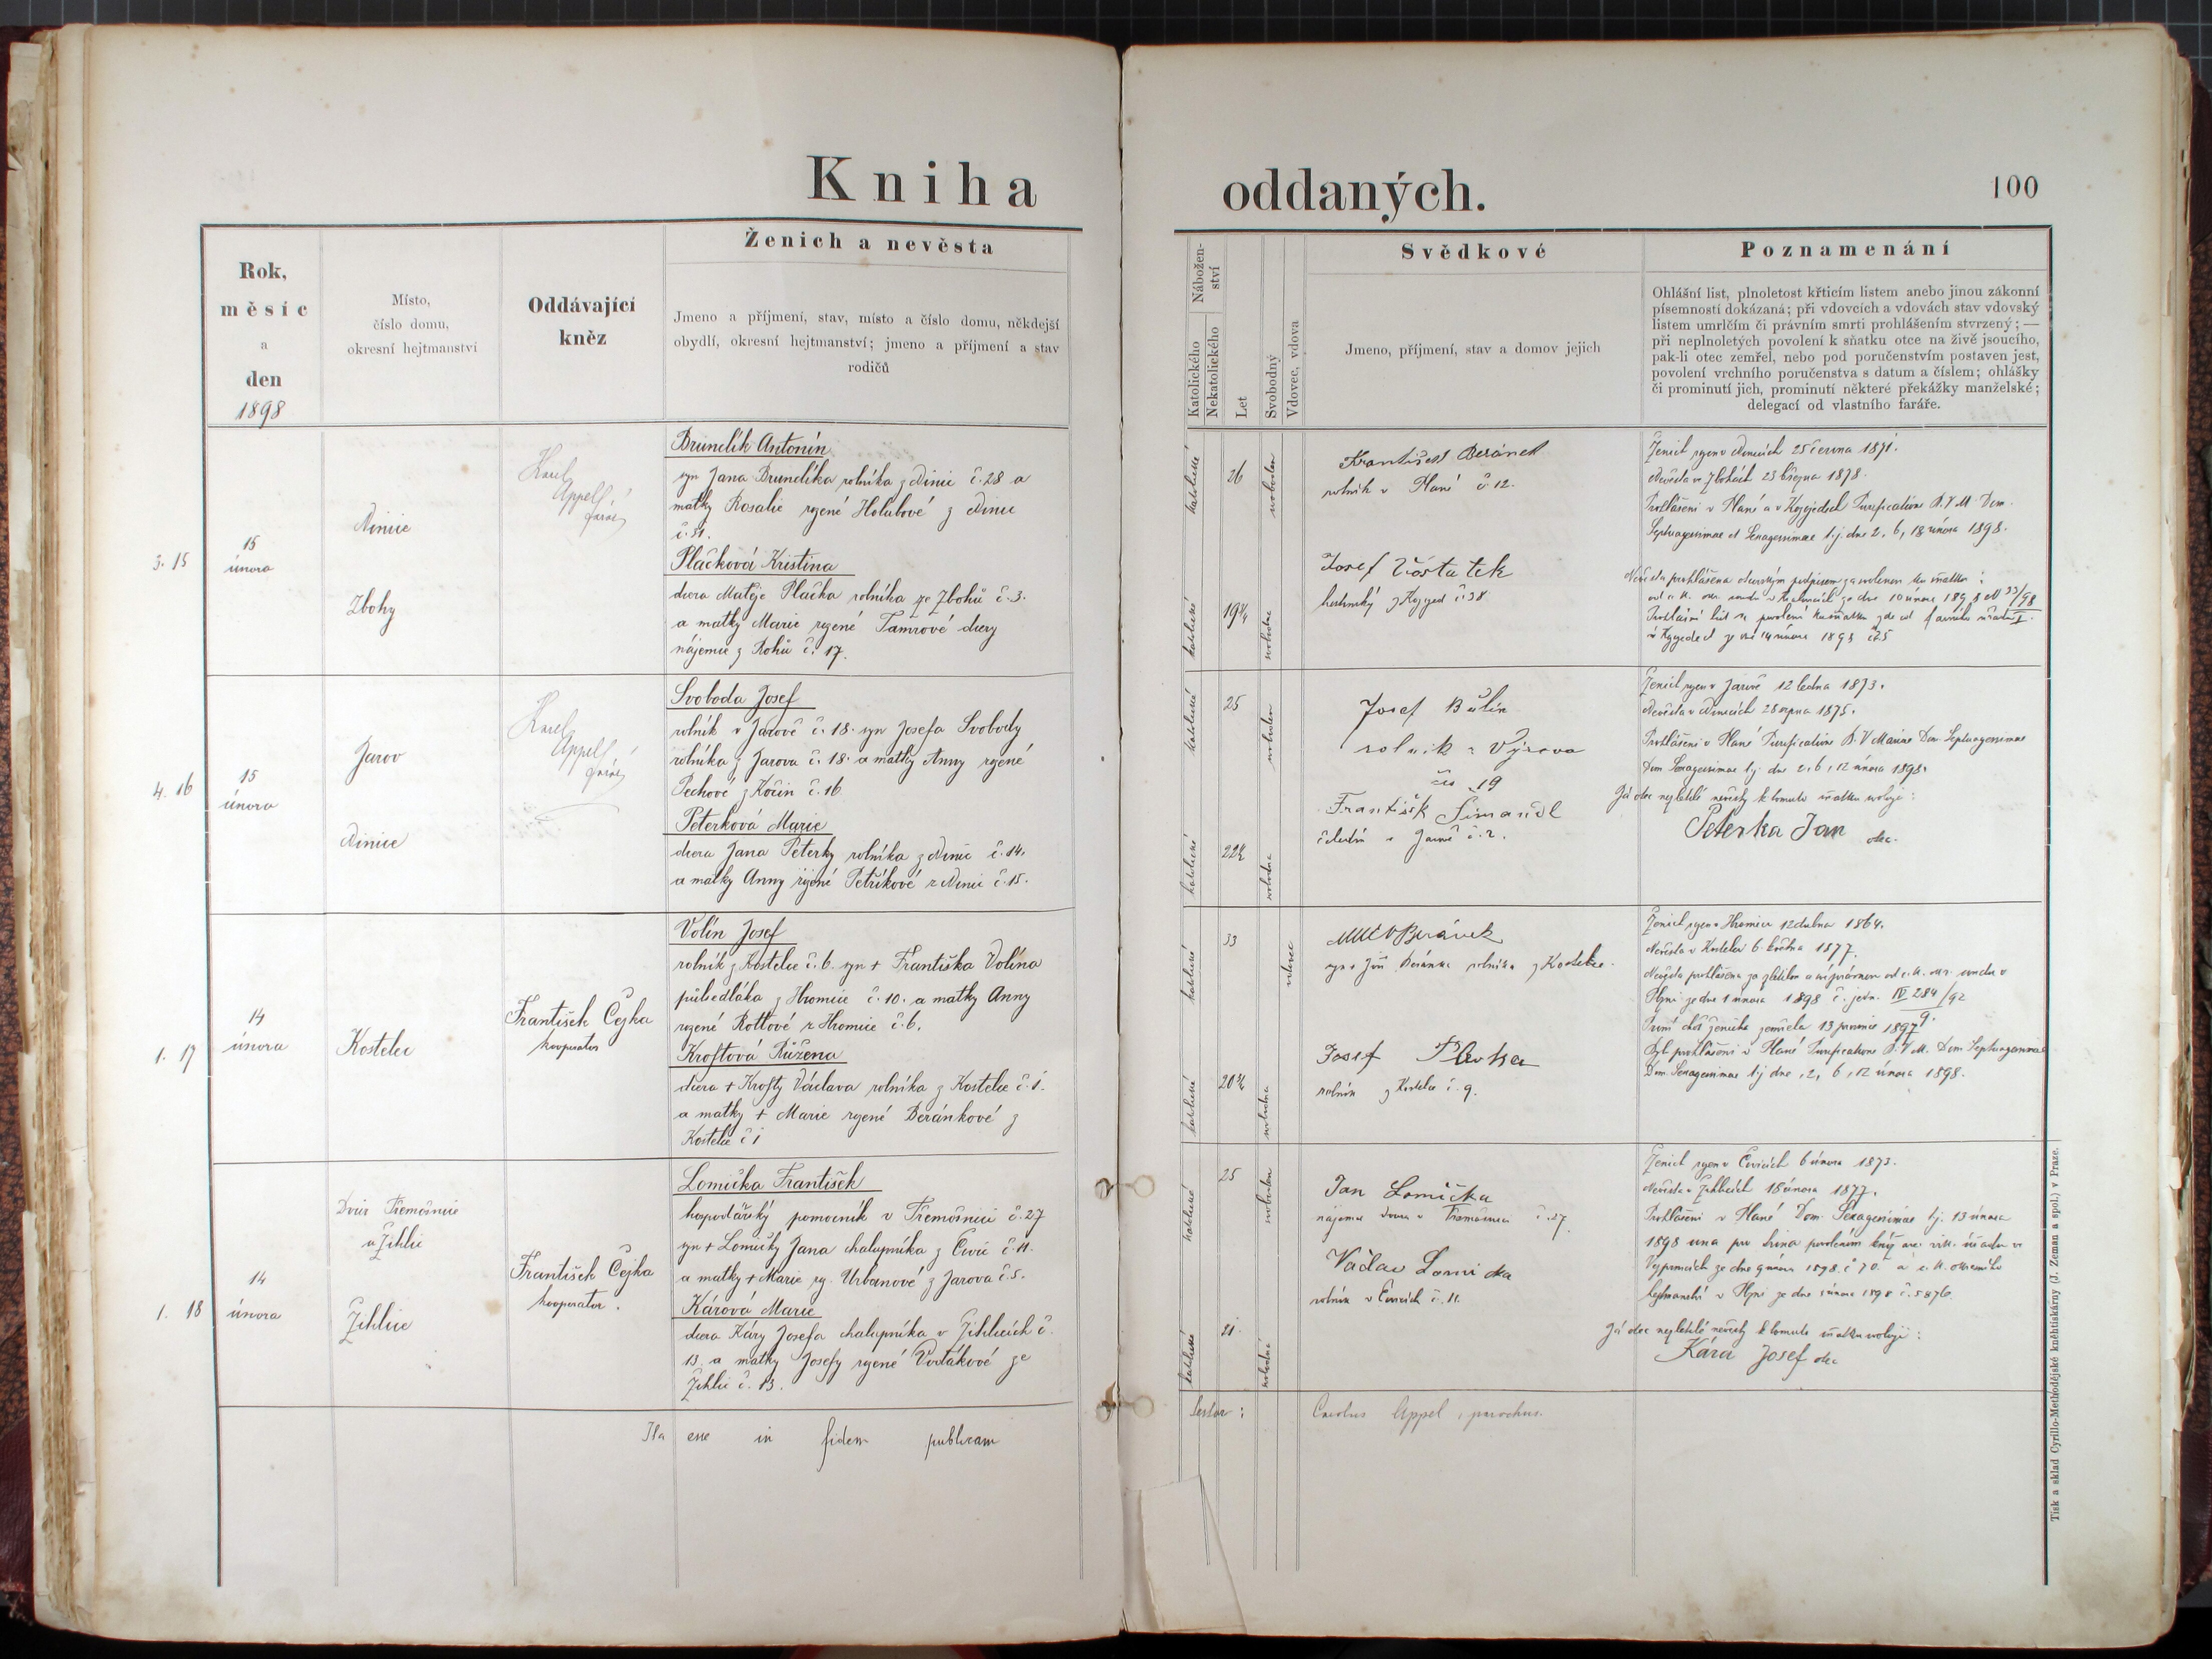 Kniha oddaných.
100
Rok, měsíc a den
1898
Místo, číslo domu, okresní hejtmanství
Oddávající kněz
Ženich a nevěsta
Jmeno a příjmení, stav, místo a číslo domu, někdejší
obydlí, okresní hejtmanství; jmeno a příjmení a stav
rodičů
Nábožen-
ství
Katolického
Nekatolického
Let
Svobodný
Vdovec, vdova
Svědkové
Jmeno, příjmení, stav a domov jejich
Poznamenání
Ohlášní list, plnoletost křticím listem anebo jinou zákonní
písemností dokázaná; při vdovcích a vdovách stav vdovský
listem umrlčím či právním smrti prohlášením stvrzený; —
při neplnoletých povolení k sňatku otce na živě jsoucího,
pak-li otec zemřel, nebo pod poručenstvím postaven jest,
povolení vrchního poručenstva s datum a číslem; ohlášky
či prominutí jich, prominutí některé překážky manželské;
delegací od vlastního faráře.
3. 15
15
února
Zbohy
Karel
Appell
farář
Brunclík Antonín
syn Jana Brunclíka rolníka z č. 28 a
matky Rosalie rozené Holubové z
Pláčková Kristina
dcera Matěje Pláčka rolníka ze Zbohů č. 3.
a matky Marie rozené Tamrové dcery
nájemce z Rohů č. 17.
katolické
26
svoboden
katolické
19
svobodna
František Beránek
rolník v Plané č. 12.
Josef
č. 38
Ženich rozen v 25 června 1871.
Nevěsta ve Zbohách 23 března 1878.
Prohlášeni v Plané a v Kozojedech Purificatione B. V. M. Dom.
Septuagesimae et Sexagesimae t. j. dne 2, 6, 1898.
10 února 1898
4. 16
15
února
Jarov
Karel
Appell
farář
Svoboda Josef
rolník v Jarově č. 18. syn Josefa Svobody
rolníka z Jarova č. 18. a matky Anny rozené
Pechové z Kočin č. 16.
Peterková Marie
dcera Jana Peterky rolníka z č. 14.
a matky Anny rozené Petříkové z č. 15.
katolické
25
svoboden
katolické
22
svobodna
Josef Bulín
rolník z Výrova
čis 19
František Šimandl
v Jarově č. 2.
Ženich rozen v Jarově 12 ledna 1873.
Nevěsta v 28 srpna 1875.
Prohlášeni v Plané Purificatione B. V. Mariae Dom. Septuagesimae
Dom. Sexagesimae t. j. dne 2, 6, 12 února 1898.
Já otec nezletilé nevěsty k tomuto sňatku svoluji:
Peterka Jan otec.
1. 17
14
února
Kostelec
František Čejka
kooperator
Volín Josef
rolník z Kostelce č. 6. syn + Františka Volína
půlsedláka z Hromice č. 10. a matky Anny
rozené Rottové z Hromice č. 6.
Kroftová Růžena
dcera + Krofty Václava rolníka z Kostelce č. 1.
a matky + Marie rozené Beránkové z
Kostelce č 1
katolické
33
vdovec
katolické
20
svobodna
Beránek
syn Beránka rolníka z Kostelce.
Josef
rolník z Kostelce č. 9.
Ženich rozen v Hromici 12 dubna 1864.
Nevěsta v Kostelci 6. května 1877.
Nevěsta prohlášena za zletilou a svéprávnou od c. k. okr. soudu v
ze dne 1 února 1898 č. jedn. IV 284/92
9.
První choť ženicha zemřela 13 prosince 1897.
Byli prohlášeni v Plané Purificatione B. V. M. Dom. Septuagesimae
Dom. Sexagesimae t. j. dne 2, 6, 12 února 1898.
1. 18
14
února
Dvůr Třemošnice
u Žihlic
Žihlice
František Čejka
kooperator.
Lomička František
hospodářský pomocník v Třemošnici č. 27
syn + Lomičky Jana chalupníka z č. 11.
a matky + Marie roz. Urbanové z Jarova č. 5.
Kárová Marie
dcera Káry Josefa chalupníka v Žihlicích č.
13. a matky Josefy rozené Vodákové ze
Žihlic č. 13.
katolické
25
svoboden
katolické
21
svobodna
Jan Lomička
nájemce dvora v Třemošnici č. 27.
Václav Lomička
rolník v č. 11.
Ženich rozen v 6 února 1873.
Nevěsta v Žihlicích 18 února 1877.
Prohlášeni v Plané Dom. Sexagesimae t. j. 13 února
1898 una pro trina
hejtmanství v ze dne února 1898 č. 5876.
Já otec nezletilé nevěsty k tomuto sňatku svoluji:
Kára Josef otec
Ita esse in fidem publicam
testor: Carolus Appel, parochus.
Tisk a sklad Cyrillo-Methodějské kněhtiskárny (J. Zeman a spol.) v Praze.